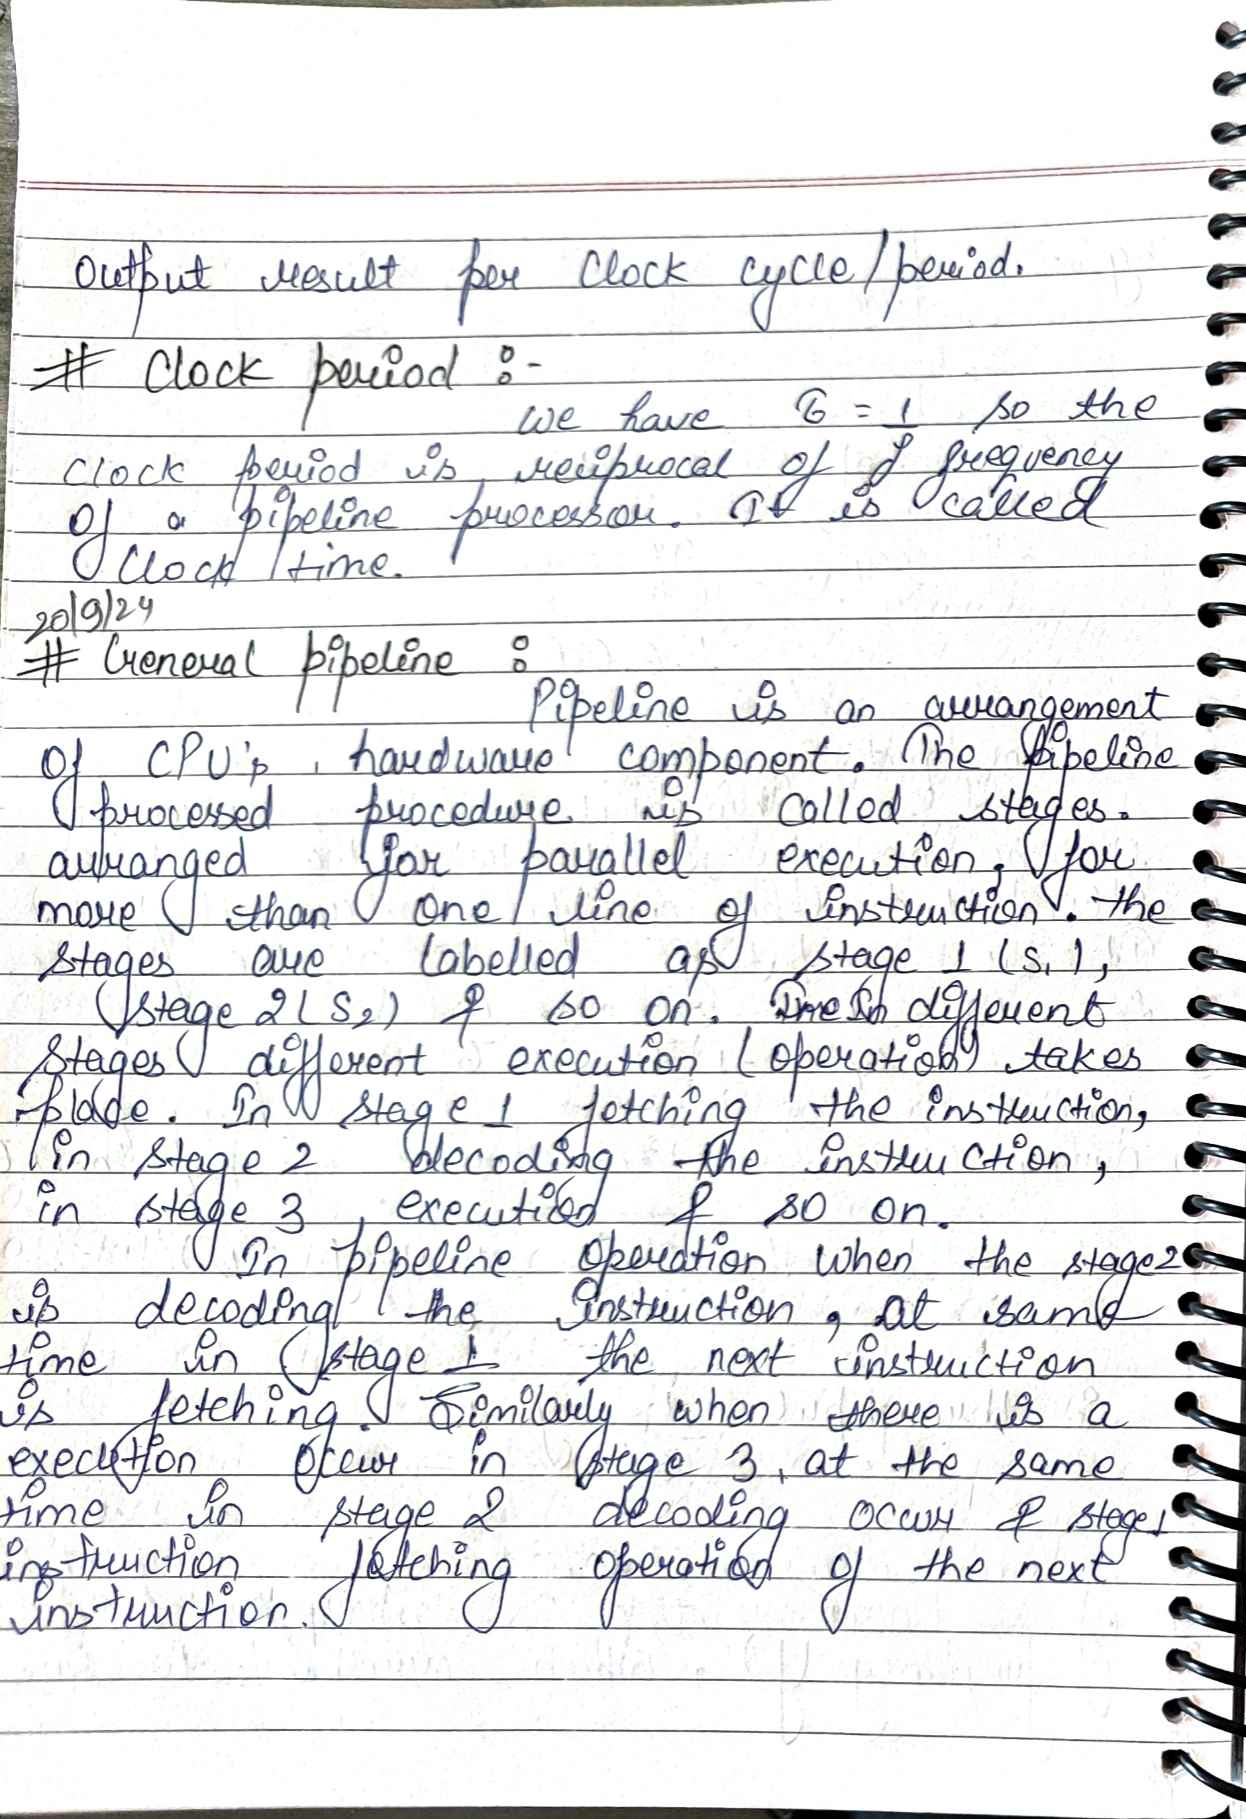 Output result per Clock cycle/period.
# Clock period :-
We have τ = 1/f so the
Clock period is reciprocal of frequency
of a pipeline processor. It is called
Clock time.
20/9/24
# General pipeline :
Pipeline is an arrangement
of CPU's hardware component. The pipeline
processed procedure is called stages.
arranged for parallel execution, for
more than one line of instruction. the
stages are labelled as stage 1 (S1),
stage 2 (S2) & so on. In different
stages different execution (operation) takes
place. In stage 1 fetching the instruction,
in stage 2 decoding the instruction,
in stage 3, execution & so on.
In pipeline operation when the stage 2
is decoding the instruction, at same
time in stage 1 the next instruction
is fetching. Similarly when there is a
execution occur in stage 3, at the same
time in stage 2 decoding occur & stage 1
instruction fetching operation of the next
instruction.